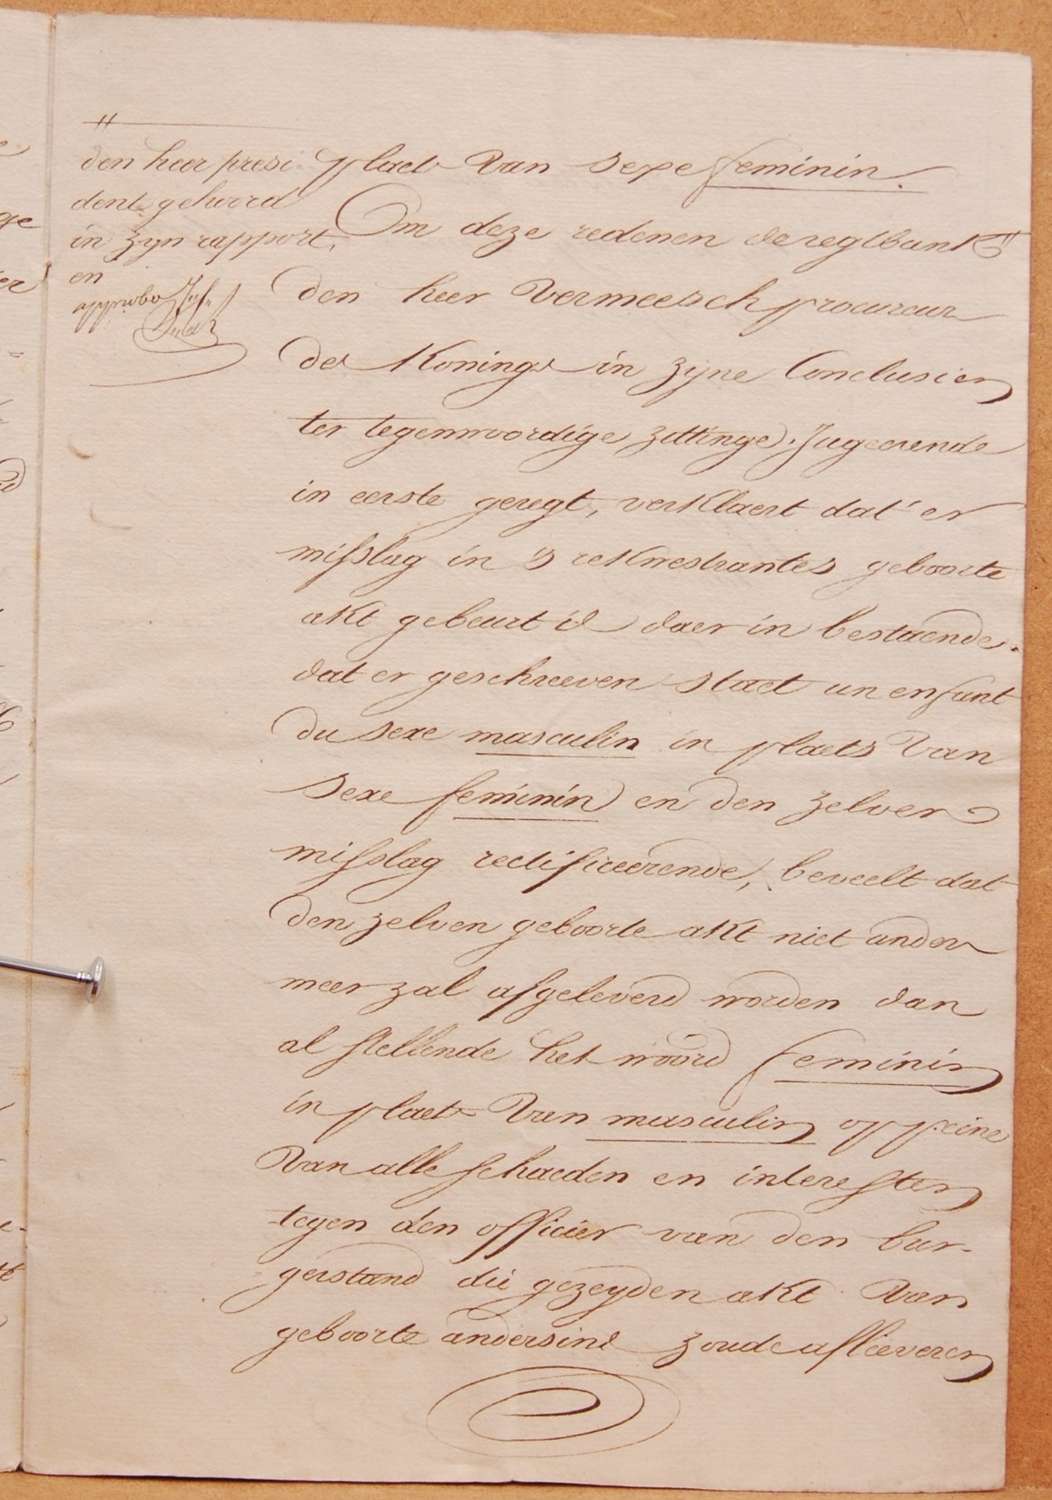 den heer presi
dent gehoord
in zijn rapport,
en
plaets van sexe feminin.
Om deze redenen de regtbank
den heer Vermeesch procureur
des Konings in zyne Conclusien
ter tegenwoordige zittinge. Jugeerende
in eerste geregt, verklaert dat er
misslag in 's rekwestrantes geboorte
akt gebeurt is daer in bestaende.
dat er geschreeven staet un enfant
du sexe masculin in plaets van
sexe feminin en den zelven
misslag rectificeerende, beveelt dat
den zelven geboorte akt niet ander
meer zal afgeleverd worden dan
al stellende het woord feminin
in plaets van masculin op peine
van alle schaeden en interesten
tegen den officier van den bur-
gerstand die gezeyden akt van
geboorte andersins zoude aflieveren